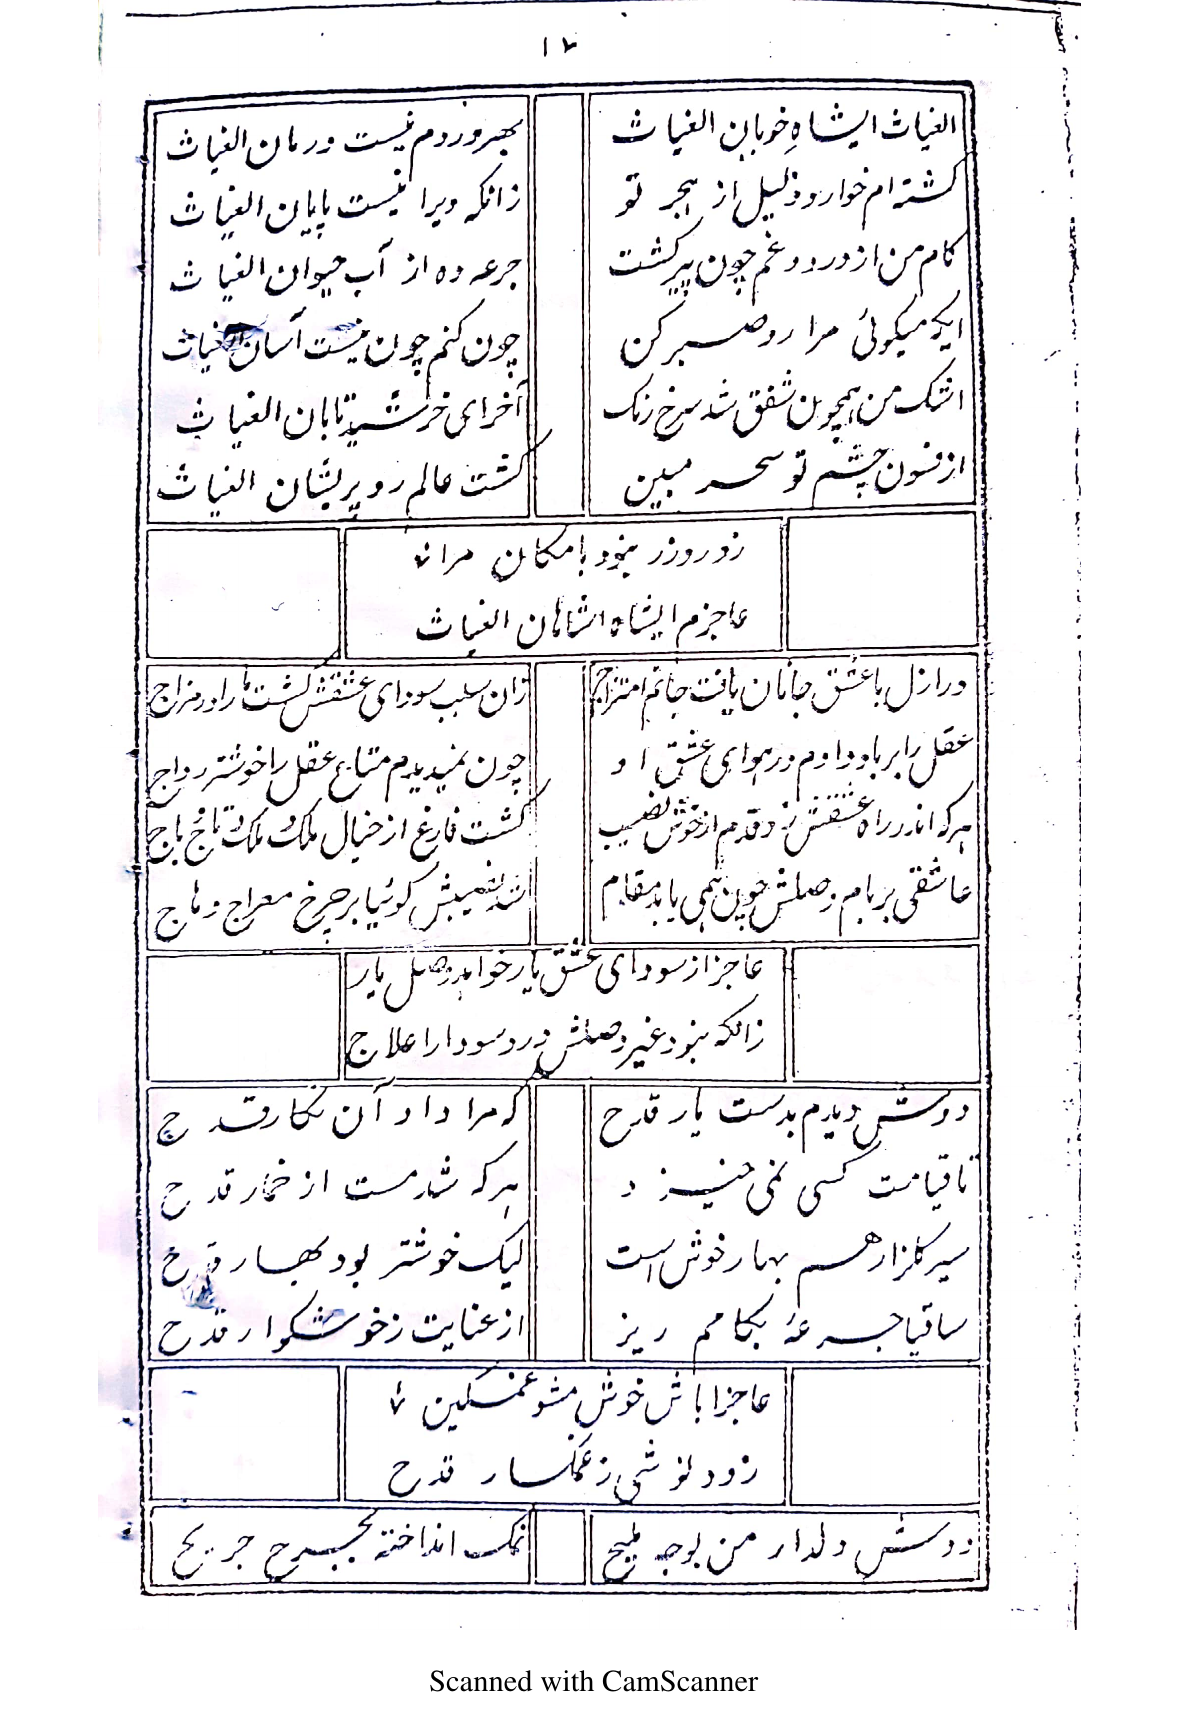 ۱۷
الغیاث ایشاهِ خوبان الغیاث
بهر وردم نیست ورمان الغیاث
کشته ام خوار و ذلیل از ہجر تو
زانکه ویرا نیست پایان الغیاث
کام من از درد و غم چون پیر کشت
جرعه ده از آب حیوان الغیاث
ایکه میکوئی مرا رو صبر کن
چون کنم چون نیست آسان الغیاث
اشک من ہمچون شفق شد سرخ رنک
آخر ای خرشید تابان الغیاث
از فسون چشم تو سحر مبین
کشت عالم رو پریشان الغیاث
زور و زر نبود بامکان مرا
عاجزم ایشاه شاہان الغیاث
در ازل با عشق جانان یافت جانم امتزاج
زان سبب سودای عشقش کشت ما را در مزاج
عقل را بر باد دادم در ہوای عشق او
چون ندیدم متاع عقل را خوشتر رواج
ہر که اندر راه عشقش زد قدم از خوش نصیب
کشت فارغ از خیال ملک و ملک و تاج باج
عاشقی بر بام وصلش چون ہمی یابد مقام
شد نصیبش کوئیا بر چرخ معراج و ہاج
عاجز از سودای عشق یار خواہد وصل یار
زانکه نبود غیر وصلش درد سودا را علاج
دوش دیدم بدست یار قدح
که مرا داد آن نکار قدح
تا قیامت کسی نمی خیزد
ہر که شد مست از خمار قدح
سیر کلزار ہم بهار خوش است
لیک خوشتر بود بهار قدح
ساقیا جرعهٔ بکامم ریز
از عنایت ز خوشکوار قدح
عاجزا باش خوش مشو غمکین
زود نوشی ز غمکسار قدح
دوش دلدار من بوجه ملیح
نمک انداخته بجرح جریح
Scanned with CamScanner